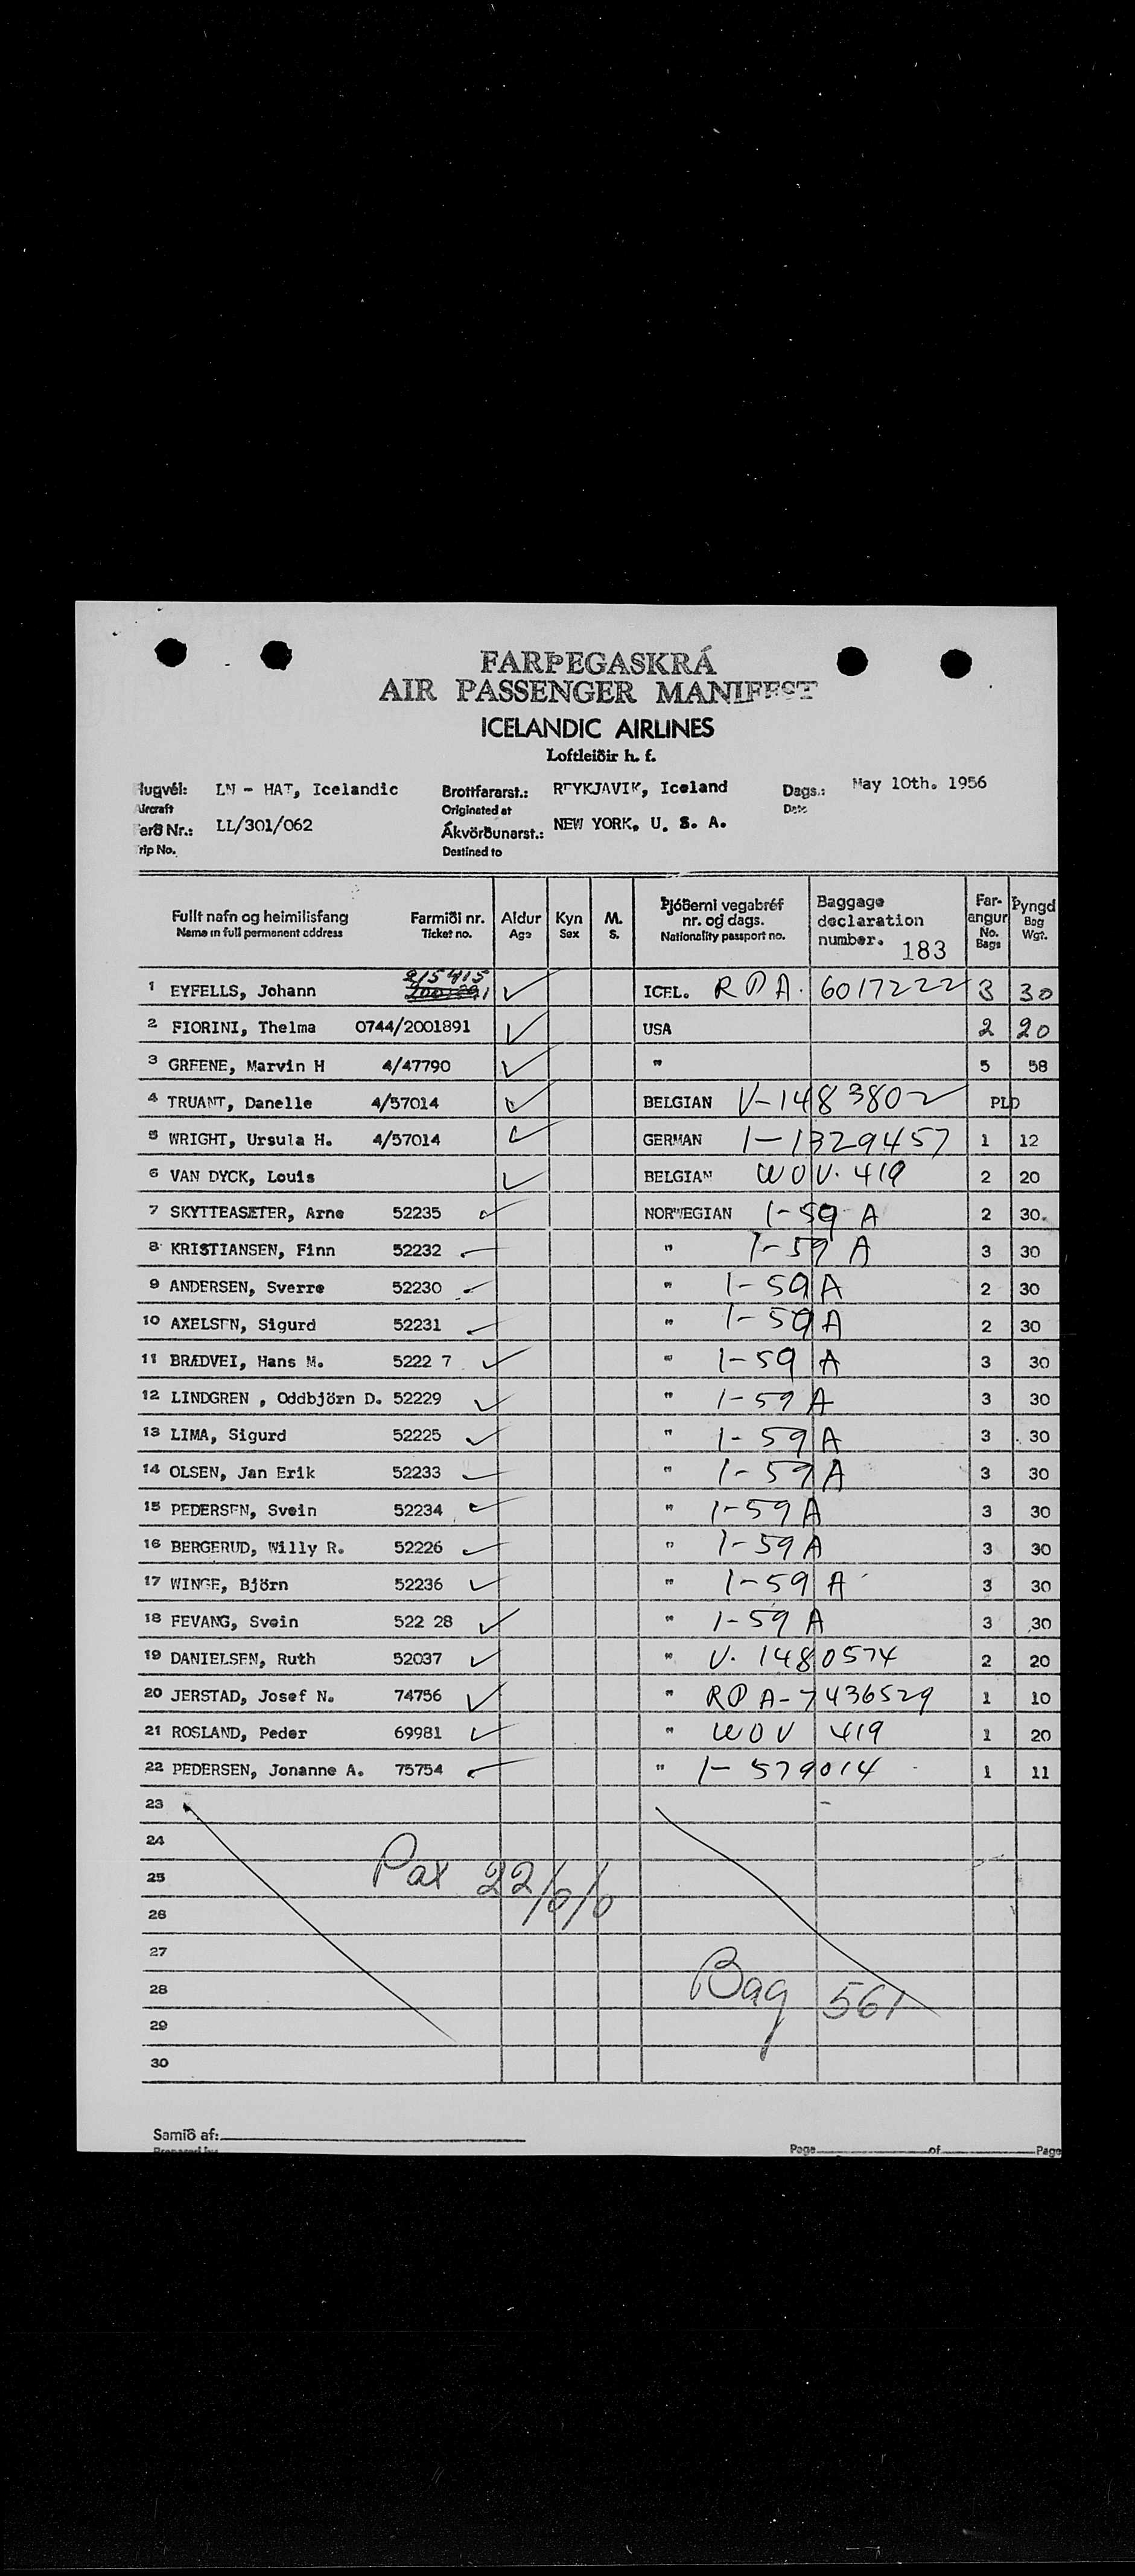 FARÞEGASKRÁ
AIR PASSENGER MANIFEST
ICELANDIC AIRLINES
Loftleiðir h. f.
lugvél: LN - HAT, Icelandic Brottfararst.: REYKJAVIK, Iceland Dags.: May 10th. 1956
Aircraft Originated at Date
erð Nr.: LL/301/062 Ákvörðunarst.: NEW YORK, U. S. A.
rip No. Destined to
Fullt nafn og heimilisfang Farmiði nr. Aldur Kyn M. Þjóðerni vegabréf Baggage Far- Þyngd
Name in full permanent address Ticket no. Age Sex S. nr. og dags. declaration angur Bag
Nationality passport no. number. 183 No. Bags Wgt.
215415
1 EYFELLS, Johann ICEL. R P A. 6017222 3 30
2 FIORINI, Thelma 0744/2001891 USA 2 20
3 GREENE, Marvin H 4/47790 " 5 58
4 TRUANT, Danelle 4/57014 BELGIAN V-1483802 PLD
5 WRIGHT, Ursula H. 4/57014 GERMAN 1-1329457 1 12
6 VAN DYCK, Louis BELGIAN WOV. 419 2 20
7 SKYTTEASETER, Arne 52235 NORWEGIAN 1-59 A 2 30.
8 KRISTIANSEN, Finn 52232 " 1-59 A 3 30
9 ANDERSEN, Sverre 52230 " 1-59 A 2 30
10 AXELSEN, Sigurd 52231 " 1-59 A 2 30
11 BRÆDVEI, Hans M. 5222 7 " 1-59 A 3 30
12 LINDGREN , Oddbjörn D. 52229 " 1-59 A 3 30
13 LIMA, Sigurd 52225 " 1-59 A 3 30
14 OLSEN, Jan Erik 52233 " 1-59 A 3 30
15 PEDERSEN, Svein 52234 " 1-59 A 3 30
16 BERGERUD, Willy R. 52226 " 1-59 A 3 30
17 WINGE, Björn 52236 " 1-59 A 3 30
18 FEVANG, Svein 522 28 " 1-59 A 3 30
19 DANIELSEN, Ruth 52037 " V. 1480574 2 20
20 JERSTAD, Josef N. 74756 " RPA-7436529 1 10
21 ROSLAND, Peder 69981 " WOV 419 1 20
22 PEDERSEN, Jonanne A. 75754 " 1-579014 1 11
23
24
25 Pax 22/0/0
26
27
28 Bag 561
29
30
Samið af:
Prepared by: Page of Page